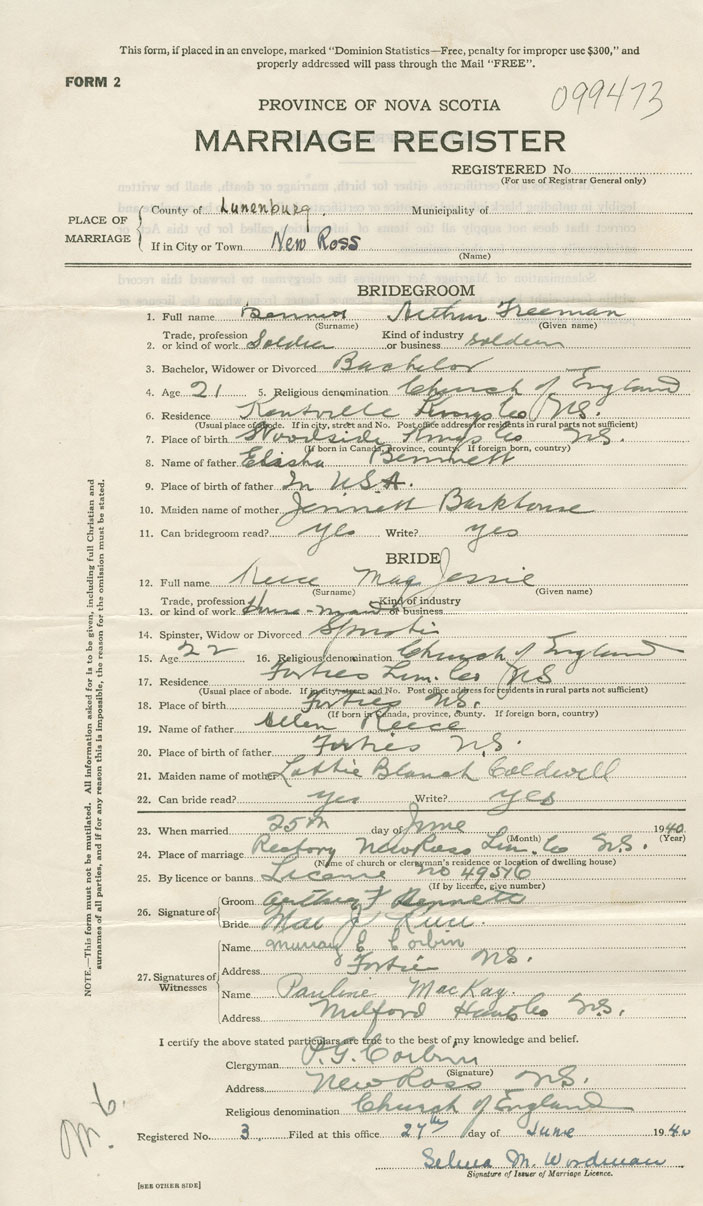 This form, if placed in an envelope, marked "Dominion Statistics—Free, penalty for improper use $300," and
properly addressed will pass through the Mail "FREE".
FORM 2
099473
PROVINCE OF NOVA SCOTIA
MARRIAGE REGISTER
REGISTERED No.
(For use of Registrar General only)
PLACE OF MARRIAGE
County of Lunenburg. Municipality of
If in City or Town New Ross
(Name)
BRIDEGROOM
1. Full name Bennett Arthur Freeman
(Surname) (Given name)
2. Trade, profession or kind of work Soldier Kind of industry or business soldier
3. Bachelor, Widower or Divorced Bachelor
4. Age 21 5. Religious denomination Church of England
6. Residence Kentville Kings Co NS.
(Usual place of abode. If in city, street and No. Post office address for residents in rural parts not sufficient)
7. Place of birth Woodside Kings Co NS.
(If born in Canada, province, county. If foreign born, country)
8. Name of father Elisha Bennett
9. Place of birth of father In U.S.A.
10. Maiden name of mother Jennett Barkhouse
11. Can bridegroom read? yes Write? yes
BRIDE
12. Full name Reece May Jessie
(Surname) (Given name)
13. Trade, profession or kind of work Kind of industry or business
14. Spinster, Widow or Divorced
15. Age 22 16. Religious denomination Church of England
17. Residence Forties Lun. Co NS
(Usual place of abode. If in city, street and No. Post office address for residents in rural parts not sufficient)
18. Place of birth Forties NS.
(If born in Canada, province, county. If foreign born, country)
19. Name of father Allen Reece
20. Place of birth of father Forties N.S.
21. Maiden name of mother Lottie Blanch Coldwell
22. Can bride read? yes Write? yes
23. When married 25th day of June 1940
(Month) (Year)
24. Place of marriage Rectory New Ross Lun. Co N.S.
(Name of church or clergyman's residence or location of dwelling house)
25. By licence or banns License no 49516
(If by licence, give number)
26. Signature of
Groom Arthur F Bennett
Bride Mae J. Reece
27. Signatures of Witnesses
Name Murray E Corbin
Address Forties NS.
Name Pauline MacKay.
Address Milford Hants Co N.S.
I certify the above stated particulars are true to the best of my knowledge and belief.
Clergyman P.G. Corbin
(Signature)
Address New Ross NS.
Religious denomination Church of England
Registered No. 3 Filed at this office 27th day of June 1940
Selma M. Wordman
Signature of Issuer of Marriage Licence.
[SEE OTHER SIDE]
NOTE.—This form must not be mutilated. All information asked for is to be given, including full Christian and
surnames of all parties, and if for any reason this is impossible, the reason for the omission must be stated.